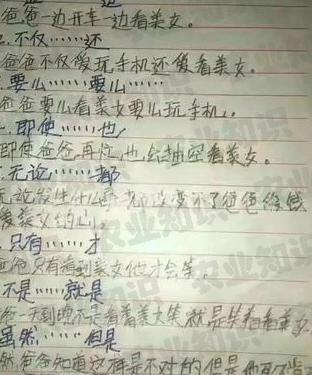 爸爸一边开车一边看美女。
不仅……还
爸爸不仅爱玩手机还爱看美女。
要么……要么……
爸爸要么看美女要么玩手机。
即使……也
即使爸爸再忙,也会抽空看美女。
无论……都
无论发生什么事都改变不了爸爸
爱美女的心。
只有……才
爸爸只有看到美女他才会笑。
不是……就是
爸一天到晚不是看着美女笑就是笑着看美女
虽然……但是
然爸爸知道这样是不对的但是他
农业知识
农业知识
农业知识